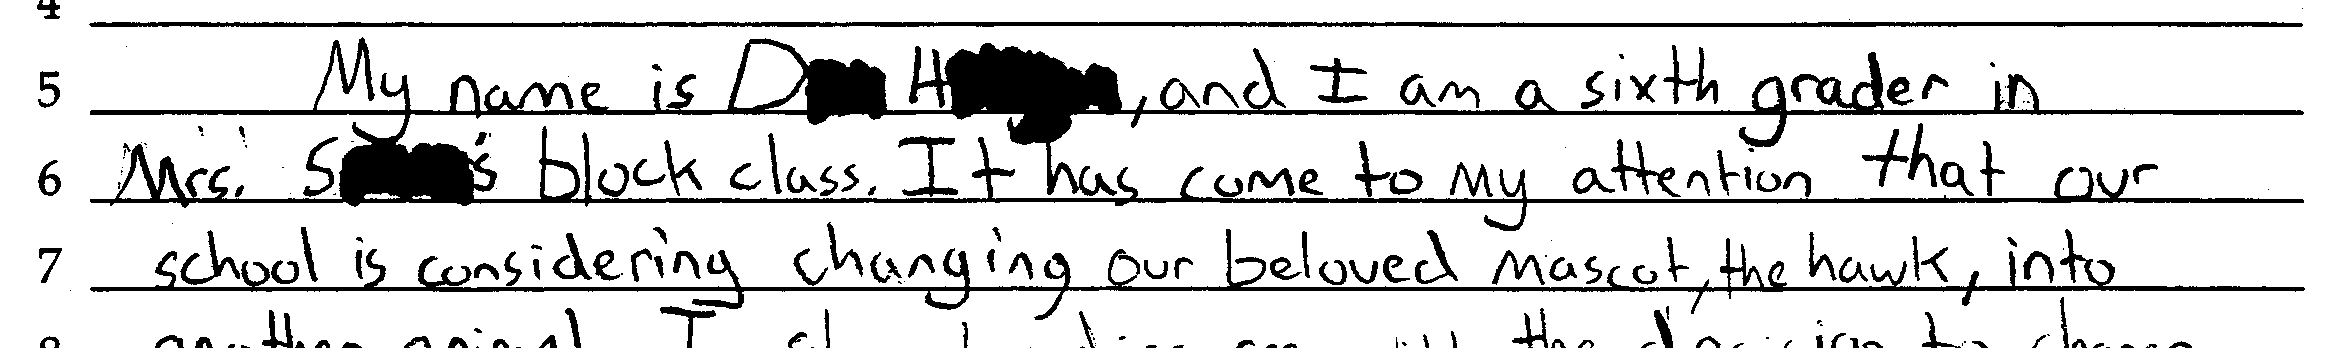 5 My name is D H, and I am a sixth grader in
6 Mrs. S's block class. It has come to my attention that our
7 school is considering changing our beloved mascot, the hawk, into
another animal. I the decision to change